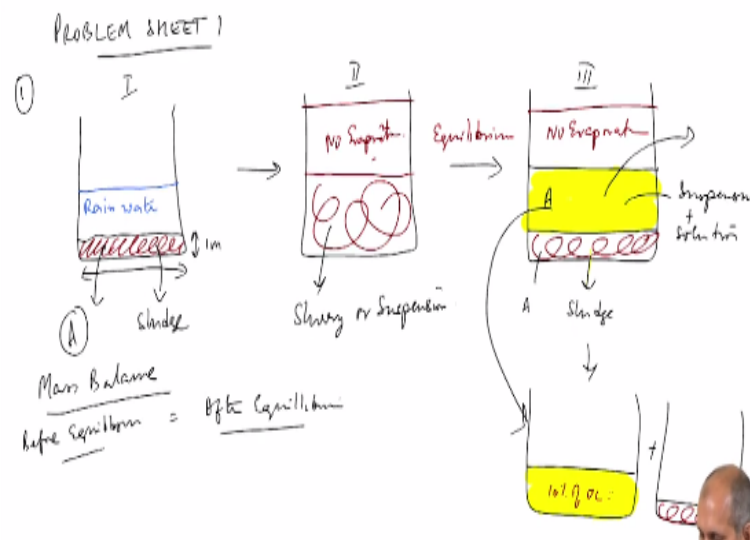 PROBLEM SHEET 1
① I
II
III
Rain water
1m
A
Sludge
NO Evaporatn.
Slurry or Suspension
Equilibrium
NO Evaporatn
A
Suspension
+
Solution
A
Sludge
Mass Balance
Before Equilibrium = After Equilibrium
A
+